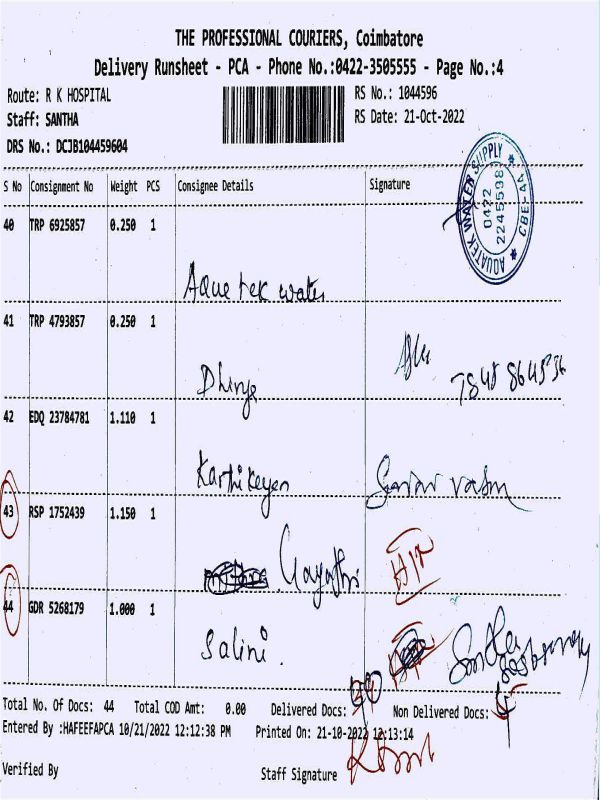 THE PROFESSIONAL COURIERS, Coimbatore
Delivery Runsheet - PCA - Phone No.:0422-3505555 - Page No.:4
Route: R K HOSPITAL RS No.: 1044596
Staff: SANTHA RS Date: 21-Oct-2022
DRS No.: DCJB104459604
S No Consignment No Weight PCS Consignee Details Signature
AQUATEK WATER SUPPLY
0422
2245598
CBE-44
40 TRP 6925857 0.250 1
Aquetek water
41 TRP 4793857 0.250 1
Dhivya 7848 864536
42 EDQ 23784781 1.110 1
Karthikeyen
43 RSP 1752439 1.150 1
Gayathri
44 GDR 5268179 1.000 1
Salini.
Total No. Of Docs: 44 Total COD Amt: 0.00 Delivered Docs: Non Delivered Docs:
Entered By :HAFEEFAPCA 10/21/2022 12:12:38 PM Printed On: 21-10-2022 12:13:14
Verified By Staff Signature